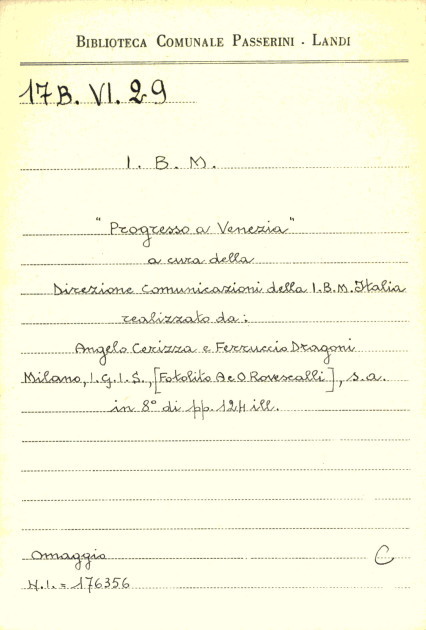 BIBLIOTECA COMUNALE PASSERINI - LANDI
17B. VI. 29
I. B. M.
"Progresso a Venezia"
a cura della
Direzione Comunicazioni della I.B.M. Italia
realizzato da:
Angelo Cerizza e Ferruccio Dragoni
Milano, I.G.I.S., [Fotolito A e O Rovescalli], s.a.
in 8° di pp. 124 ill.
Omaggio C
N.I. = 176356